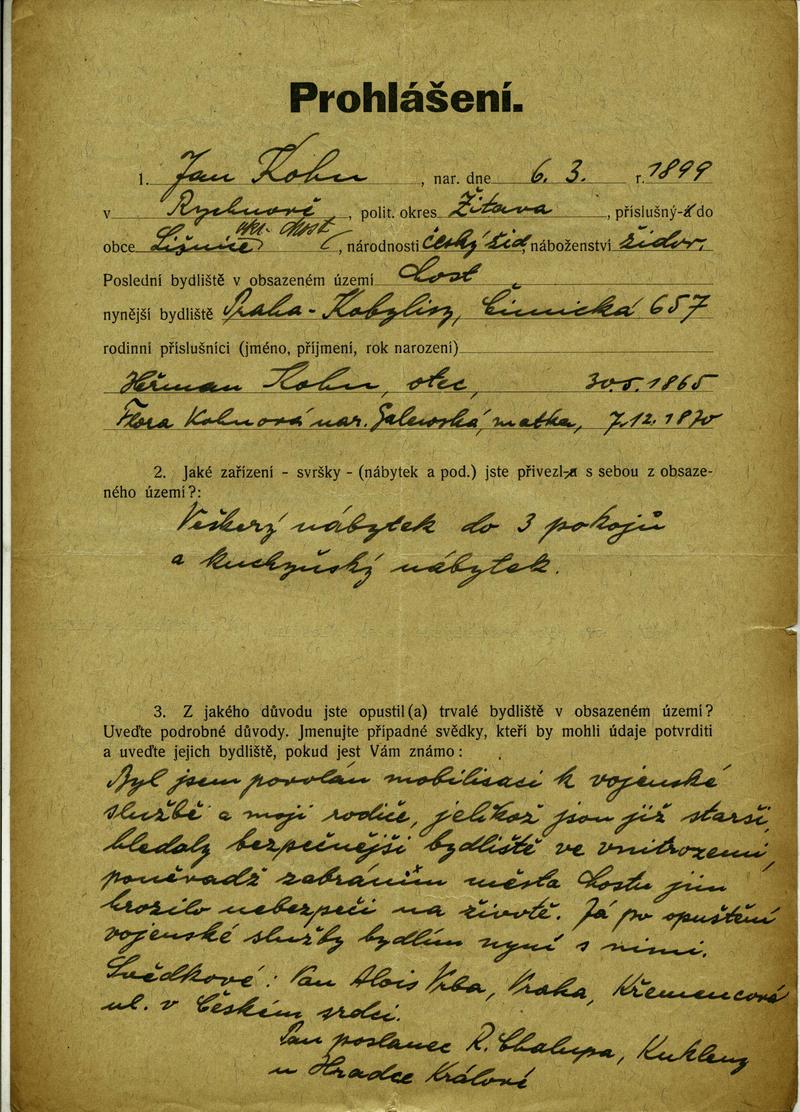 Prohlášení.
1. Jan Kohn, nar. dne 6. 3. r. 1899
v Rychnově, polit. okres Žitava, příslušný-á do
okr. Most
obce Lišnice, národnosti český žid, náboženství židov.
Poslední bydliště v obsazeném území Most
nynější bydliště Praha-Kobylisy, Čimická 657
rodinní příslušníci (jméno, příjmení, rok narození)
Heřman Kohn, otec, 30.5.1865
Flora Kohnová nar. Galewská, matka, 7.12.1870
2. Jaké zařízení - svršky - (nábytek a pod.) jste přivezl-a s sebou z obsaze-
ného území?:
Veškerý nábytek do 3 pokojů
a kuchyňský nábytek.
3. Z jakého důvodu jste opustil(a) trvalé bydliště v obsazeném území?
Uveďte podrobné důvody. Jmenujte případné svědky, kteří by mohli údaje potvrditi
a uveďte jejich bydliště, pokud jest Vám známo:
Byl jsem povolán mobilisací k vojenské
službě a moji rodiče, jelikož jsou již starší,
hledaly bezpečnější bydliště ve vnitrozemí,
poněvadž zabráním města Mostu jim
hrozilo nebezpečí na životě. Já po opuštění
vojenské služby bydlím nyní s nimi.
Svědkové: Pan Alois Vrba, Praha, Křemencová
ul. v Českém srdci.
Pan poslanec R. Chalupa, Kukleny
u Hradce Králové